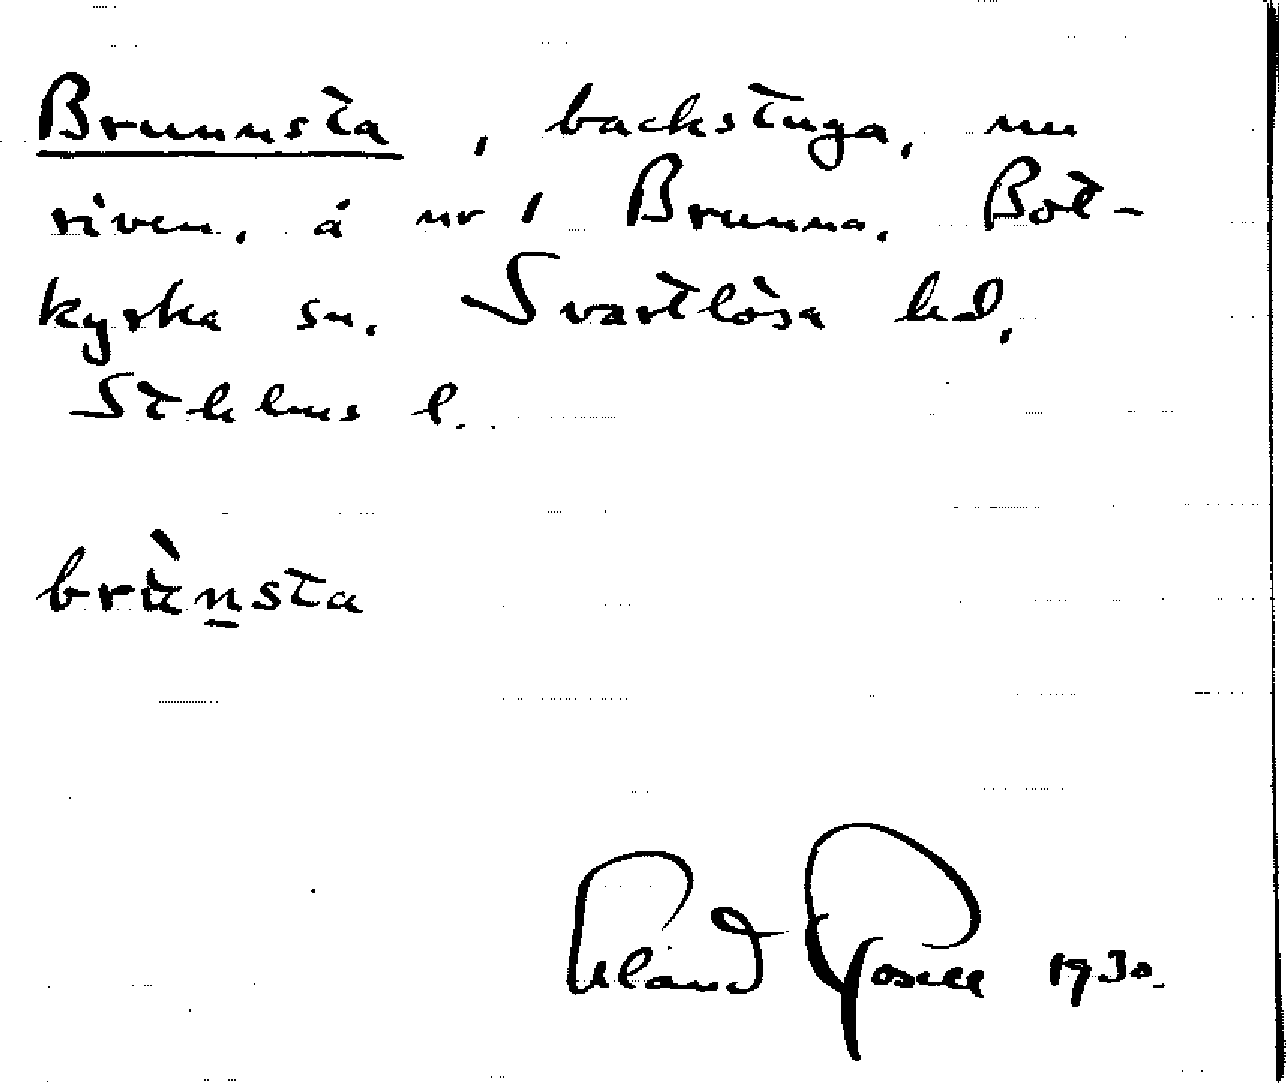 Brunnsta, backstuga, nu
riven, å nr 1 Brunna. Bot-
kyrka sn. Svartlösa hd.
Sthlms l.
brùnsta
1930.